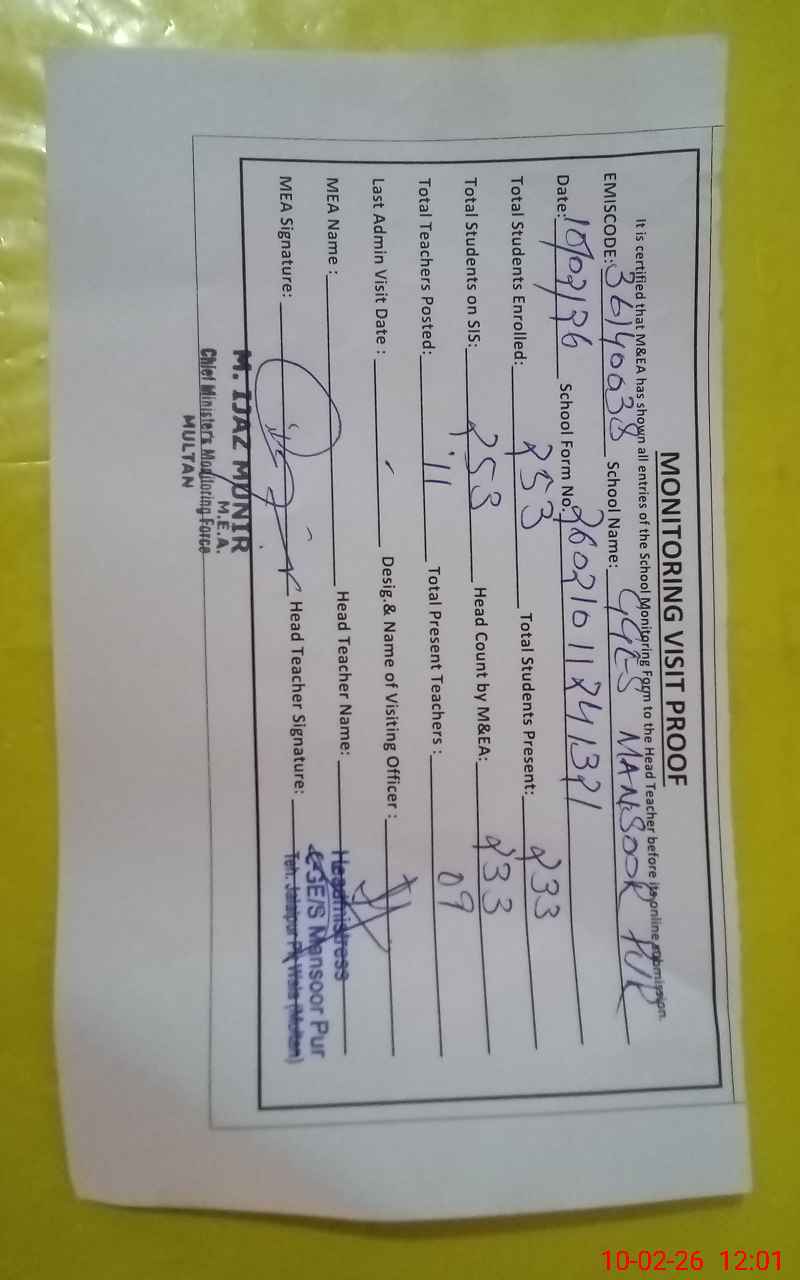 MONITORING VISIT PROOF
It is certified that M&EA has shown all entries of the School Monitoring Form to the Head Teacher before its online submission.
EMISCODE: 36140038 School Name: GGES MANSOOR PUR
Date: 10/02/26 School Form No. 26021011241321
Total Students Enrolled: 253 Total Students Present: 233
Total Students on SIS: 253 Head Count by M&EA: 233
Total Teachers Posted: 11 Total Present Teachers : 09
Last Admin Visit Date : Desig.& Name of Visiting Officer :
MEA Name : Head Teacher Name:
MEA Signature: Head Teacher Signature:
Headmistress
GGE/S Mansoor Pur
Teh. Jalalpur Pir Wala (Multan)
M. IJAZ MUNIR
M.E.A.
Chief Minister's Monitoring Force
MULTAN
10-02-26 12:01